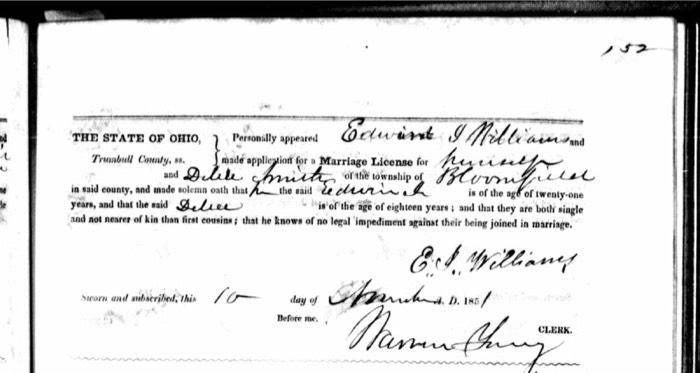 152
THE STATE OF OHIO, Personally appeared Edwin I Williams and
Trumbull County, ss. made application for a Marriage License for himself
and Smith of the township of Bloomfield
in said county, and made solemn oath that he the said Edwin is of the age of twenty-one
years, and that the said is of the age of eighteen years; and that they are both single
and not nearer of kin than first cousins; that he knows of no legal impediment against their being joined in marriage.
E. I. Williams
Sworn and subscribed, this 10 day of A. D. 1851
Before me.
Warren Young CLERK.